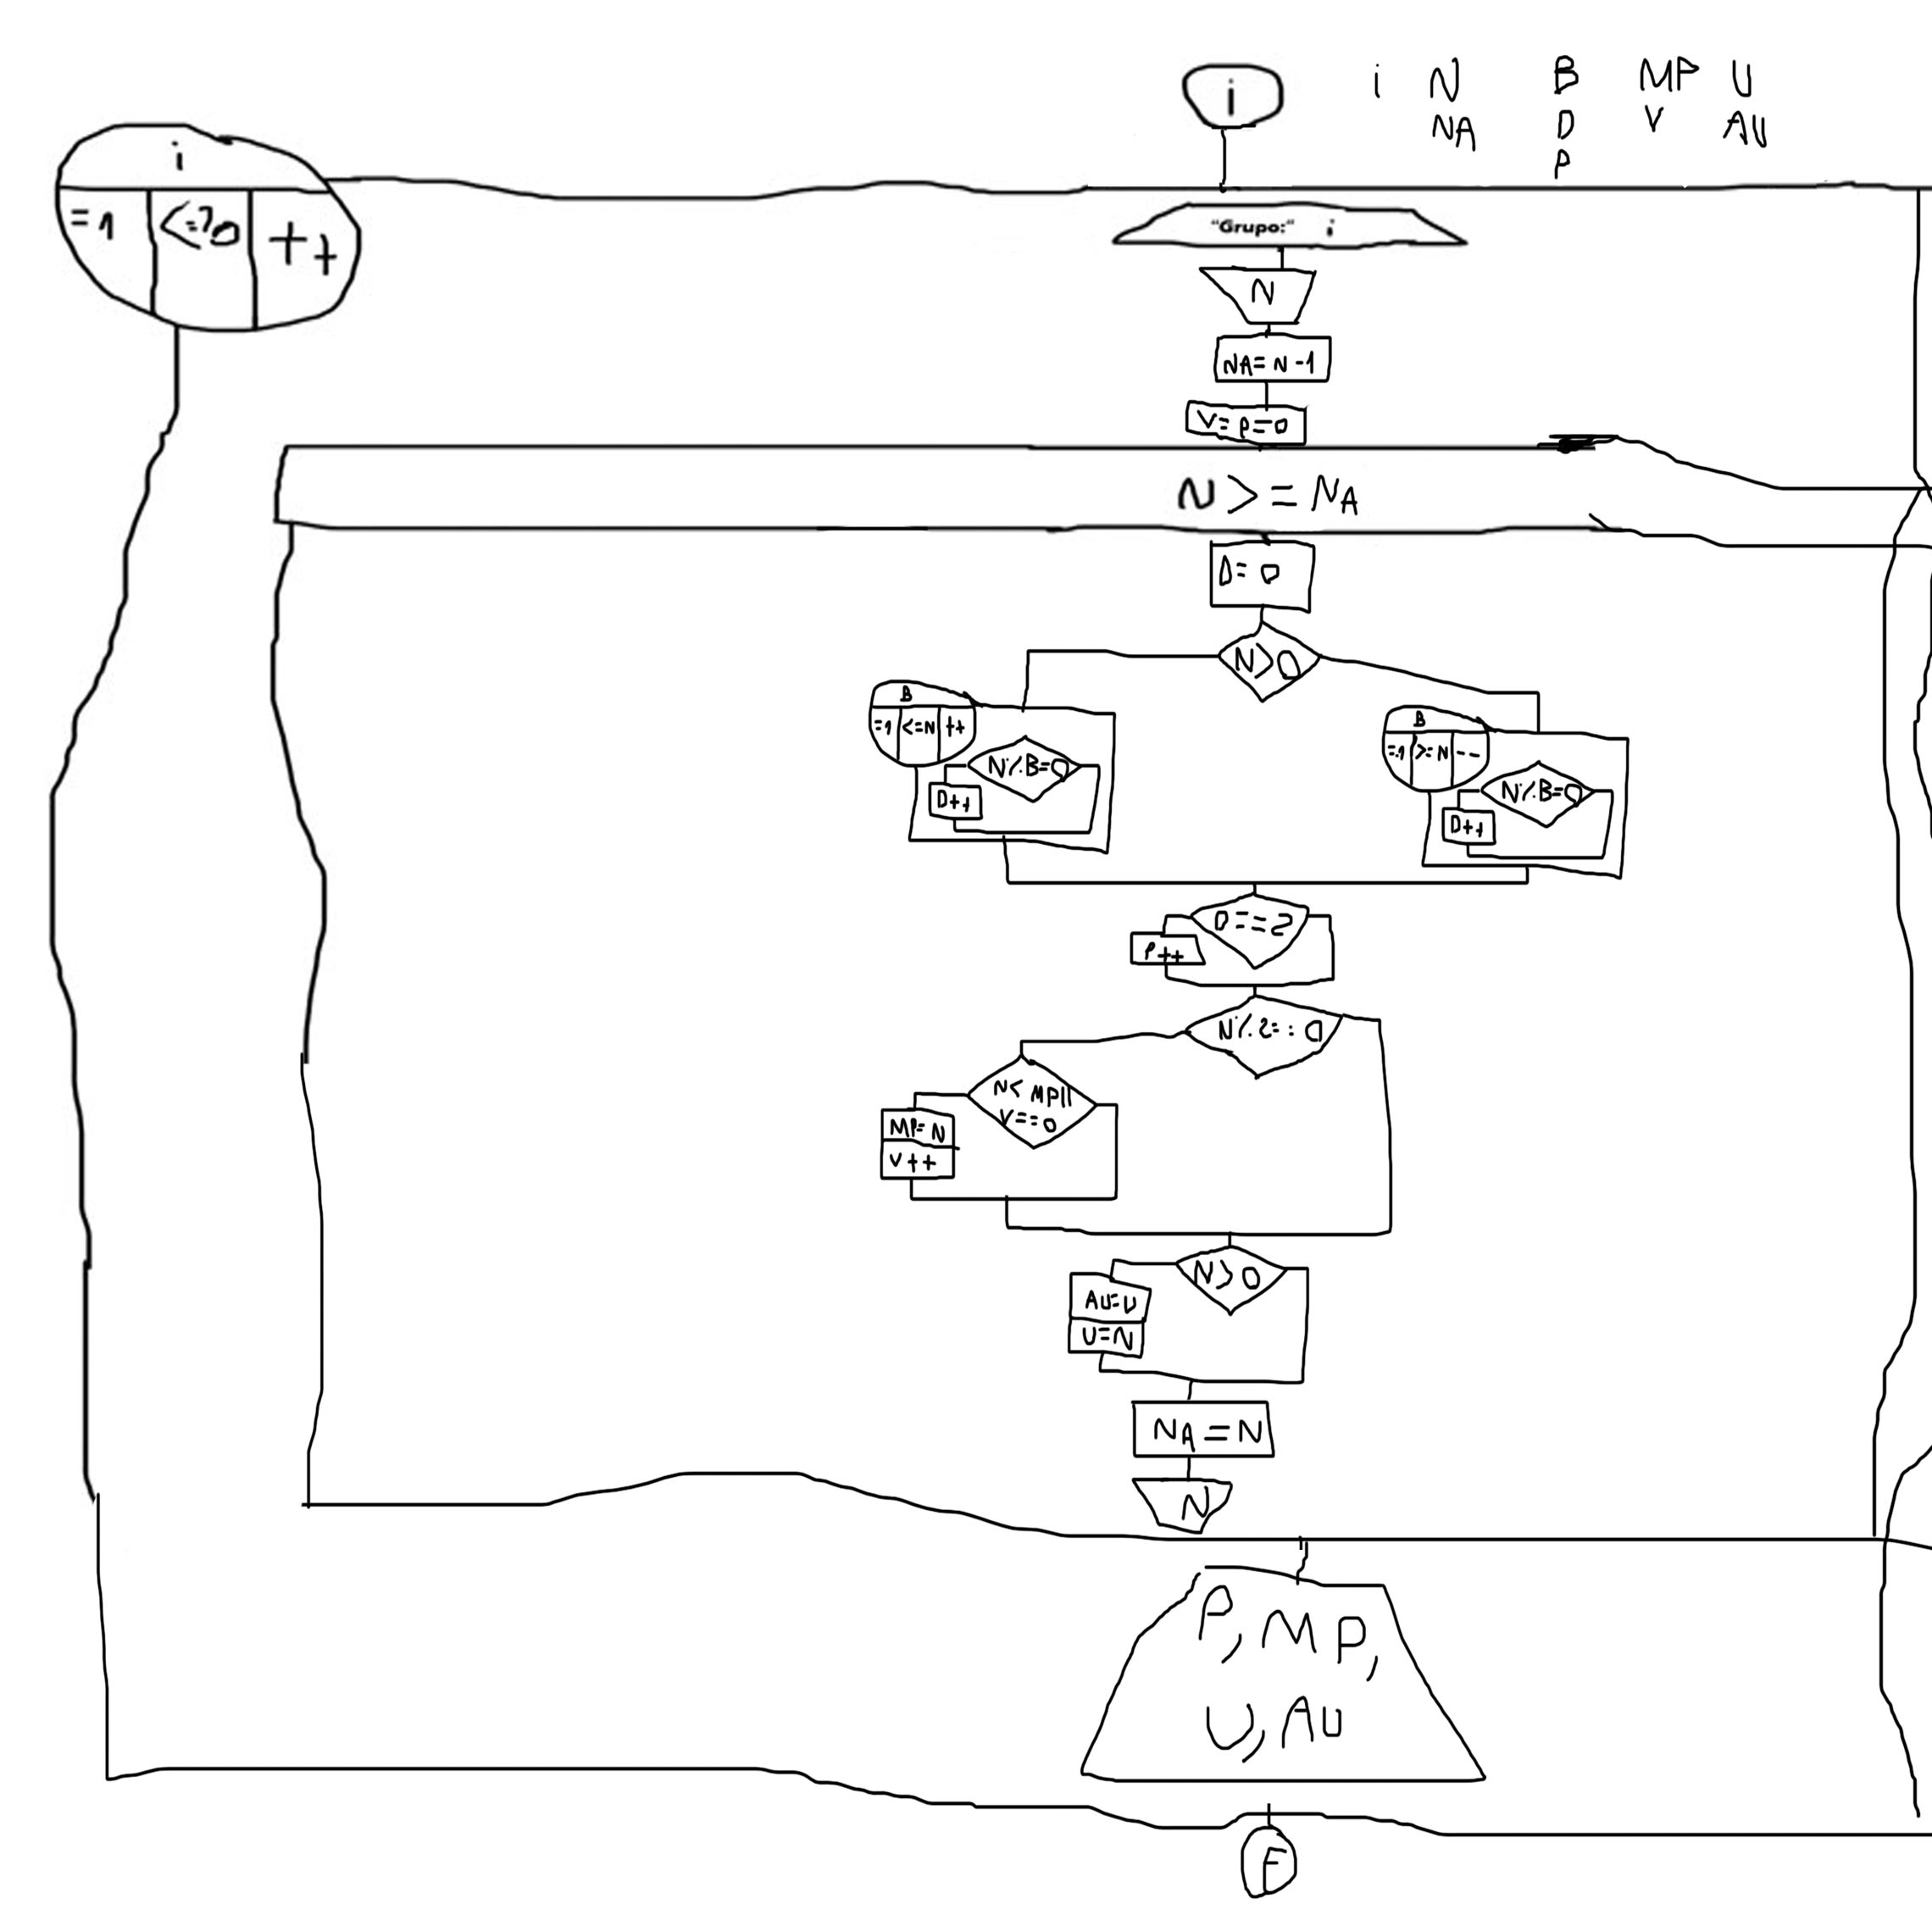 i
i N B MP U
NA D V AU
P
i
=1 <=?0 ++
"Grupo:" i
N
NA=N-1
V=P=0
N>=NA
D=0
N>0
B
=1 <=N ++
N%B=0
D++
B
=1 >=N --
N%B=0
D++
D==2
P++
N%2==0
N<MP||
V==0
MP=N
V++
N>0
AU=U
U=N
NA=N
N
P, MP,
U, AU
F